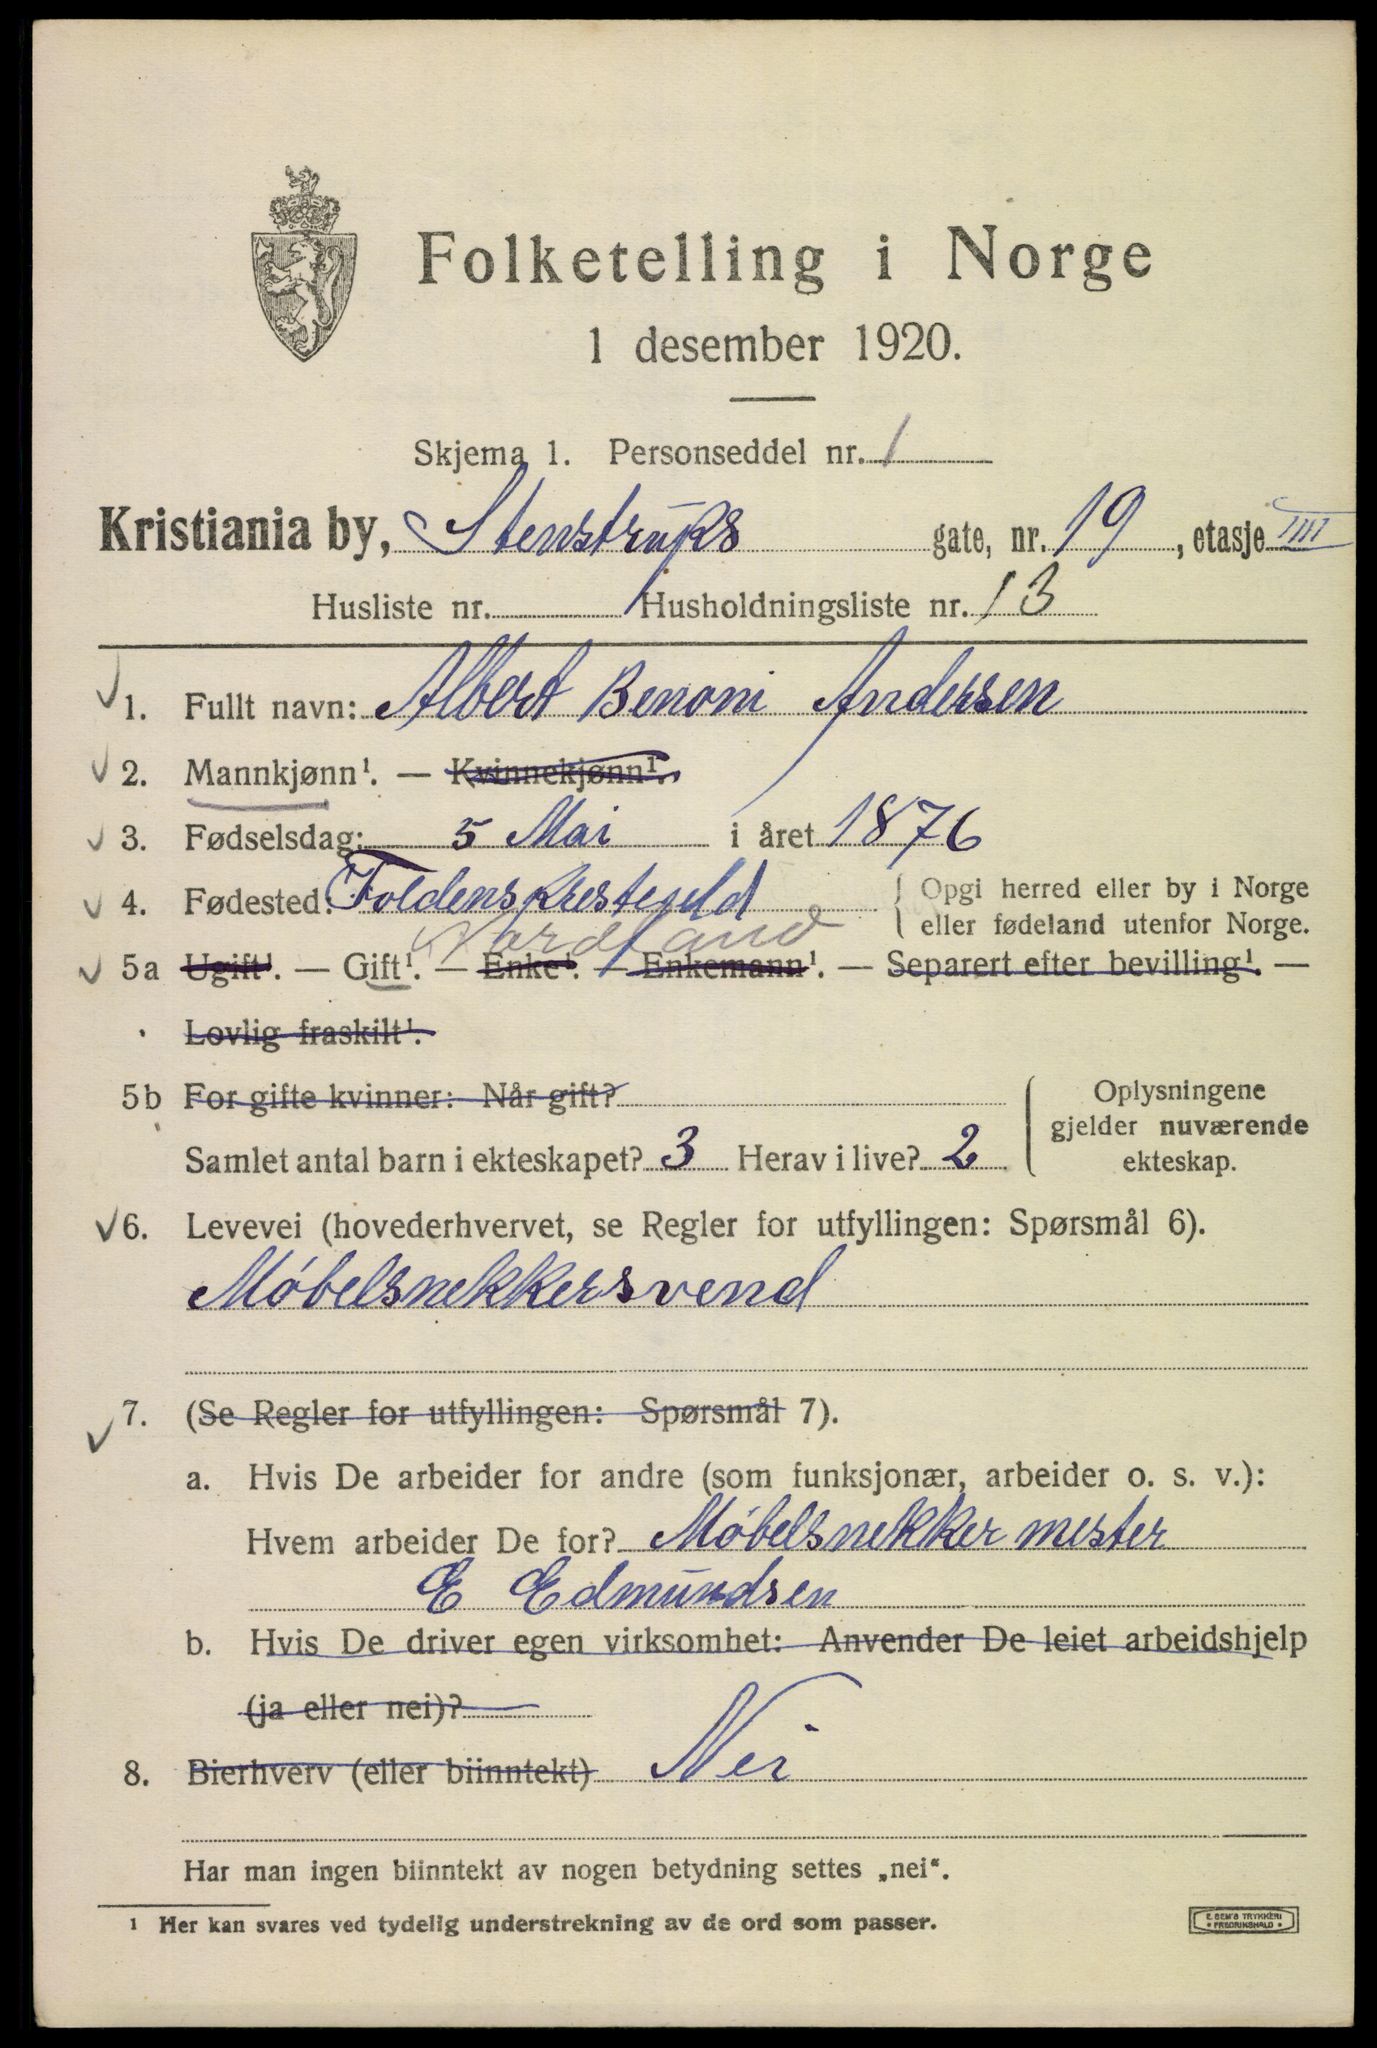 Folketelling i Norge
1 desember 1920.
Skjema 1. Personseddel nr. 1
Kristiania by, Stenstrups gate, nr. 19, etasje IIII
Husliste nr. Husholdningsliste nr. 13
1. Fullt navn: Albert Benoni Andersen
2. Mannkjønn¹. — Kvinnekjønn¹.
3. Fødselsdag: 5 Mai i året 1876
4. Fødested: Foldens { Opgi herred eller by i Norge
eller fødeland utenfor Norge.
Nordland
5a Ugift¹. — Gift¹. — Enke¹. — Enkemann¹. — Separert efter bevilling¹. —
Lovlig fraskilt¹.
5b For gifte kvinner: Når gift?
Samlet antal barn i ekteskapet? 3 Herav i live? 2
Oplysningene
gjelder nuværende
ekteskap.
6. Levevei (hovederhvervet, se Regler for utfyllingen: Spørsmål 6).
Møbelsnekkersvend
7. (Se Regler for utfyllingen: Spørsmål 7).
a. Hvis De arbeider for andre (som funksjonær, arbeider o. s. v.):
Hvem arbeider De for? Møbelsnekker mester
E Edmundsen
b. Hvis De driver egen virksomhet: Anvender De leiet arbeidshjelp
(ja eller nei)?
8. Bierhverv (eller biinntekt) Nei
Har man ingen biinntekt av nogen betydning settes „nei“.
¹ Her kan svares ved tydelig understrekning av de ord som passer.
E SEM'S TRYKKERI
• FREDRIKSHALD •